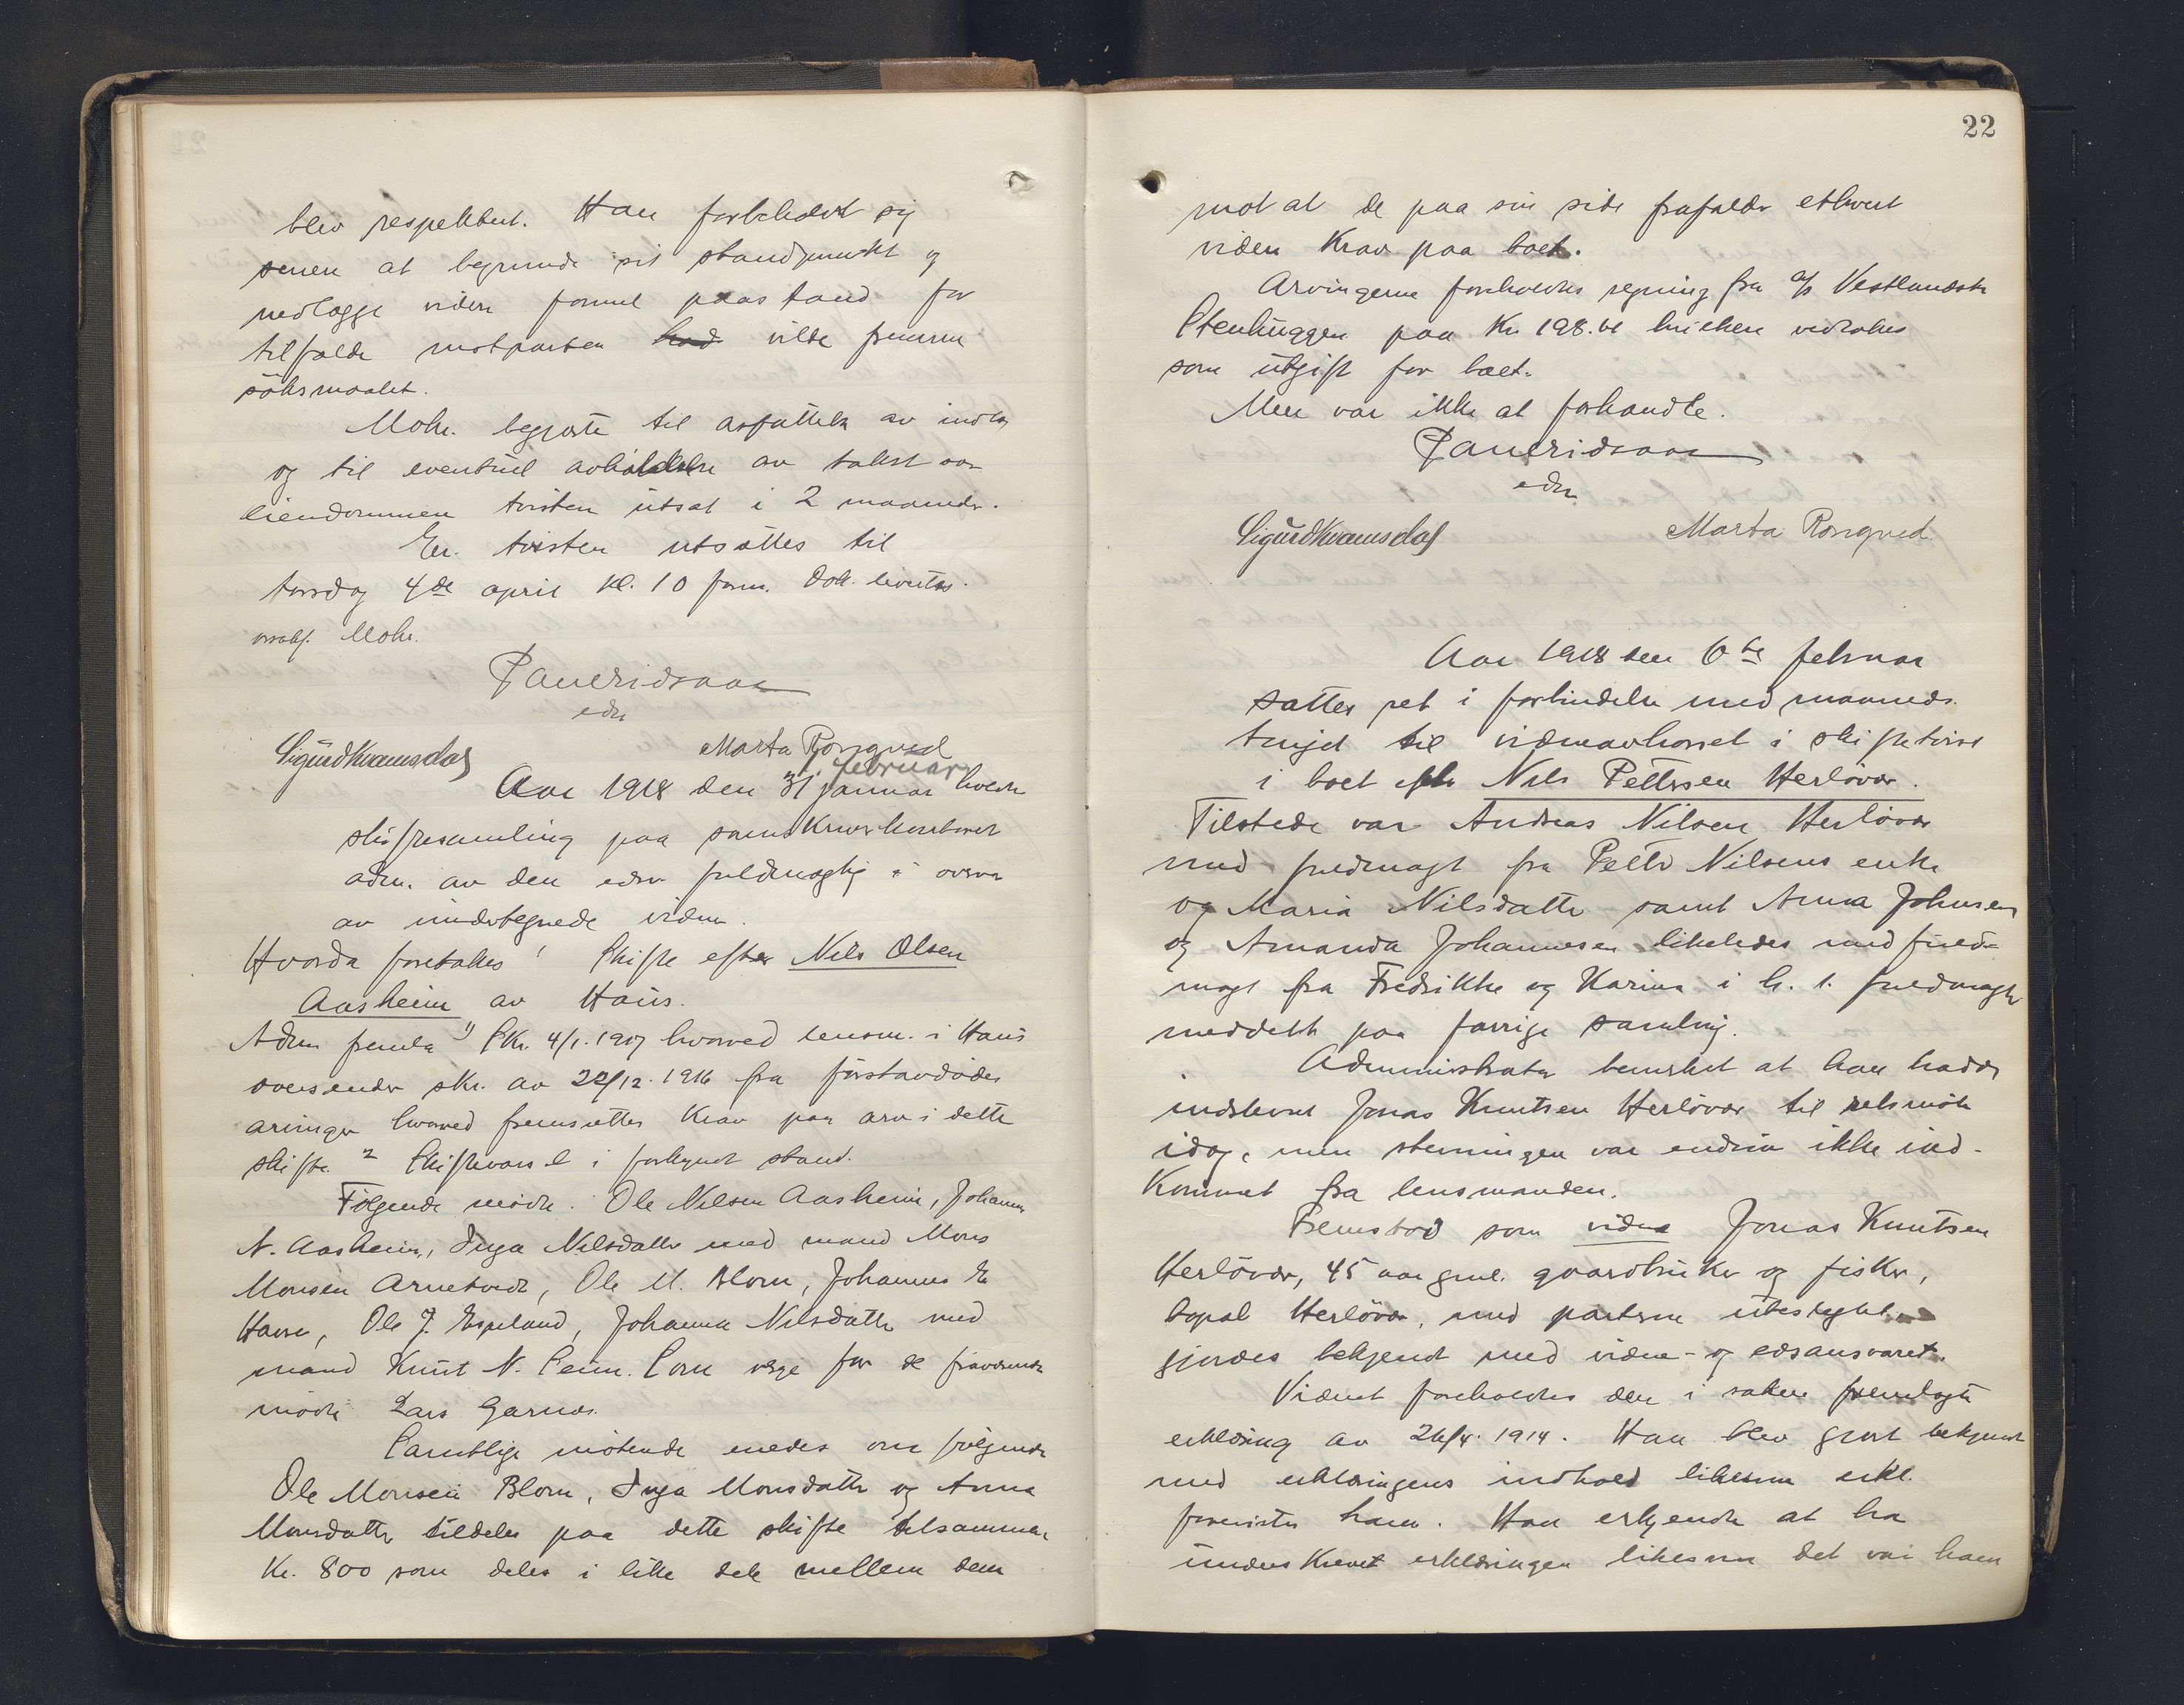 blev respektert. Han forbeholdt sig
senere at begrunde sit standpunkt og
nedlægge videre formel paastand for
tilfælde motparten had vilde fremme
søksmaalet.
Mohr. begjærte til avfattelse av indlæg
og til eventuel avholdelse av takst over
eiendommen tvisten utsat i 2 maaneder.
Er. tvisten utsættes til
torsdag 4de april kl. 10 form. Dok. levertes
orsakf. Mohr.
P Lauridsen
edsv
Sigurd Kvamsdal Marta Rongved
februar
Aar 1918 den 31 januar holdtes
skiftesamling paa sorenskriverkontoret
adm. av den edsv fuldmægtig i overvær
av undertegnede vidner.
Hvorda foretokes! Skifte efter Nils Olsen
Aasheim av Haus.
Adm fremla 1) Skr. 4/1.1917 hvorved lensm. i Haus
oversender skr. av 22/12.1916 fra førstavdødes
arvinger hvorved fremsættes krav paa arv i dette
skifte. 2 Skiftevarsel i forkyndt stand.
Følgende møtte: Ole Nilsen Aasheim, Johannes
N. Aasheim, Inga Nilsdatter med mand Mons
Monsen Arnetvedt, Ole M. Blom, Johannes E
Hauge, Ole J. Espeland, Johanna Nilsdatter med
mand Knut N. Seim. Som verge for de fraværende
møtte Lars Garnes.
Samtlige møtende enedes om følgende
Ole Monsen Blom, Inga Monsdatter og Anna
Monsdatter tildeles paa dette skifte tilsammen
Kr. 800 som deles i like dele mellem dem
22
mot at de paa sin side frafalder ethvert
videre krav paa boet.
Arvingerne foreholdtes regning fra a/s Vestlandske
Stenhuggeri paa Kr 198.61 hvilken vedtokes
som utgift for boet.
Mere var ikke at forhandle.
P Lauridsen
edsv
Sigurd Kvamsdal Marta Rongved.
Aar 1918 den 6te februar
sattes ret i forbindelse med maaneds
tinget til vidneavhøret i skiftetvist
i boet efter Nils Pettersen Herløvær.
Tilstede var Andreas Nilsen Herløvær
med fuldmagt fra Petter Nilsens enke
og Maria Nilsdatter samt Anna Johnsen
og Amanda Johannesen likeledes med fuld-
magt fra Fredrikke og Karina i h. t. fuldmagter
meddelt paa forrige samling.
Administrator bemerket at han hadde
indstevnt Jonas Knutsen Herløvær til retsmøte
idag, men stevningen var endnu ikke ind-
kommet fra lensmanden.
Fremstod som vidne Jonas Knutsen
Herløvær, 45 aar gml. gaardbruker og fisker,
bopæl Herløvær, med parterne ubeslegtet.
gjordes bekjendt med vidne- og edsansvaret.
Vidnet foreholdtes den i saken fremlagte
erklæring av 26/4.1914. Han blev gjort bekjendt
med erklæringens indhold likesom erkl.
forevistes ham. Han erkjendte at ha
underskrevet erklæringen likesom det var ham